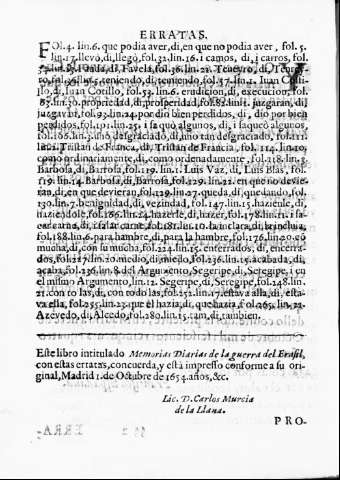 ERRATAS.
FOl. 4. lin. 6. que podia aver, di, en que no podia aver, fol. 5.
lin. 17. llevò, di, llegò, fol. 32. lin. 16. i campos, di, i carros, fol.
di, Favela, fol. 36. lin. 21.
teniendo, di, teniendo, fol. 37. lin.
llo, di, Iuan Cotillo, fol. 53. lin. 6. erudicion, di, execucion, fol.
83. lin. 30. propriedad, di, prosperidad, fol. 82. lin. juzgaran, di,
juzgavan, fol. 93. lin. 24. por dio bien perdidos, di, dio por bien
perdidos, fol. 191. lin. 25. i saquò algunos, di, i saqueò algunos,
fol. 106. lin. 3. uno desgraciado, di, uno tan desgraciado, fol. 111
lin. Tristan de Franca, di, Tristan de Francia, fol. 114. lin. 10.
como ordinariamente, di, como ordenadamente, fol. 118. lin. 3.
Barbosa, di, Barrosa, fol. 119. lin. 1. Luis Vaz, di, Luis Blas, fol.
119. lin. 14. Barbosa, di, Barrosa, fol. 129. lin. 22. en que no devie-
ran, di, en que devieran, fol. 129. lin. 27. queda, di, que queda, fol.
130. lin. 7. benignidad, di, vezindad, fol. 147. lin. 15. haziende, di,
haziendole, fol. 166. lin. 24. hazerle, di, hazer, fol. 178. lin. 11. i sa-
car carne, di, i salar carne, fol. 181. lin. 10. la inclara, di, inclusa,
fol. 188. lin. 6. para hambre, di, para la hambre, fol. 176. lin. 20. cō
mucha, di, con su mucha, fol. 224. lin. 15. enterrados, di, encerra-
dos, fol. 227. lin. 20. medio, di, miedo, fol. 236. lin. 15. acabada, di,
acaba, fol. 236. lin. 8. del Argumento, Segeripe, di, Seregipe, i en
el mismo Argumento, lin. 12. Segeripe, di, Seregipe, fol. 248. lin.
21. con to las, di, con todo las, fol. 252. lin. 17. estava alla, di, esta-
va ella, fol. 255. lin. 23. que él hazia, di, que hazia, fol. 265. lin. 22.
Azevedo, di, Alcedo, fol. 280. lin. 15. tam, di, tambien.
Este libro intitulado Memorias Diarias de la guerra del Brasil,
con estas erratas, concuerda, y està impresso conforme a su ori-
ginal, Madrid 1. de Octubre de 1654. años, &c.
Lic. D. Carlos Murcia
de la Llana.
PRO-